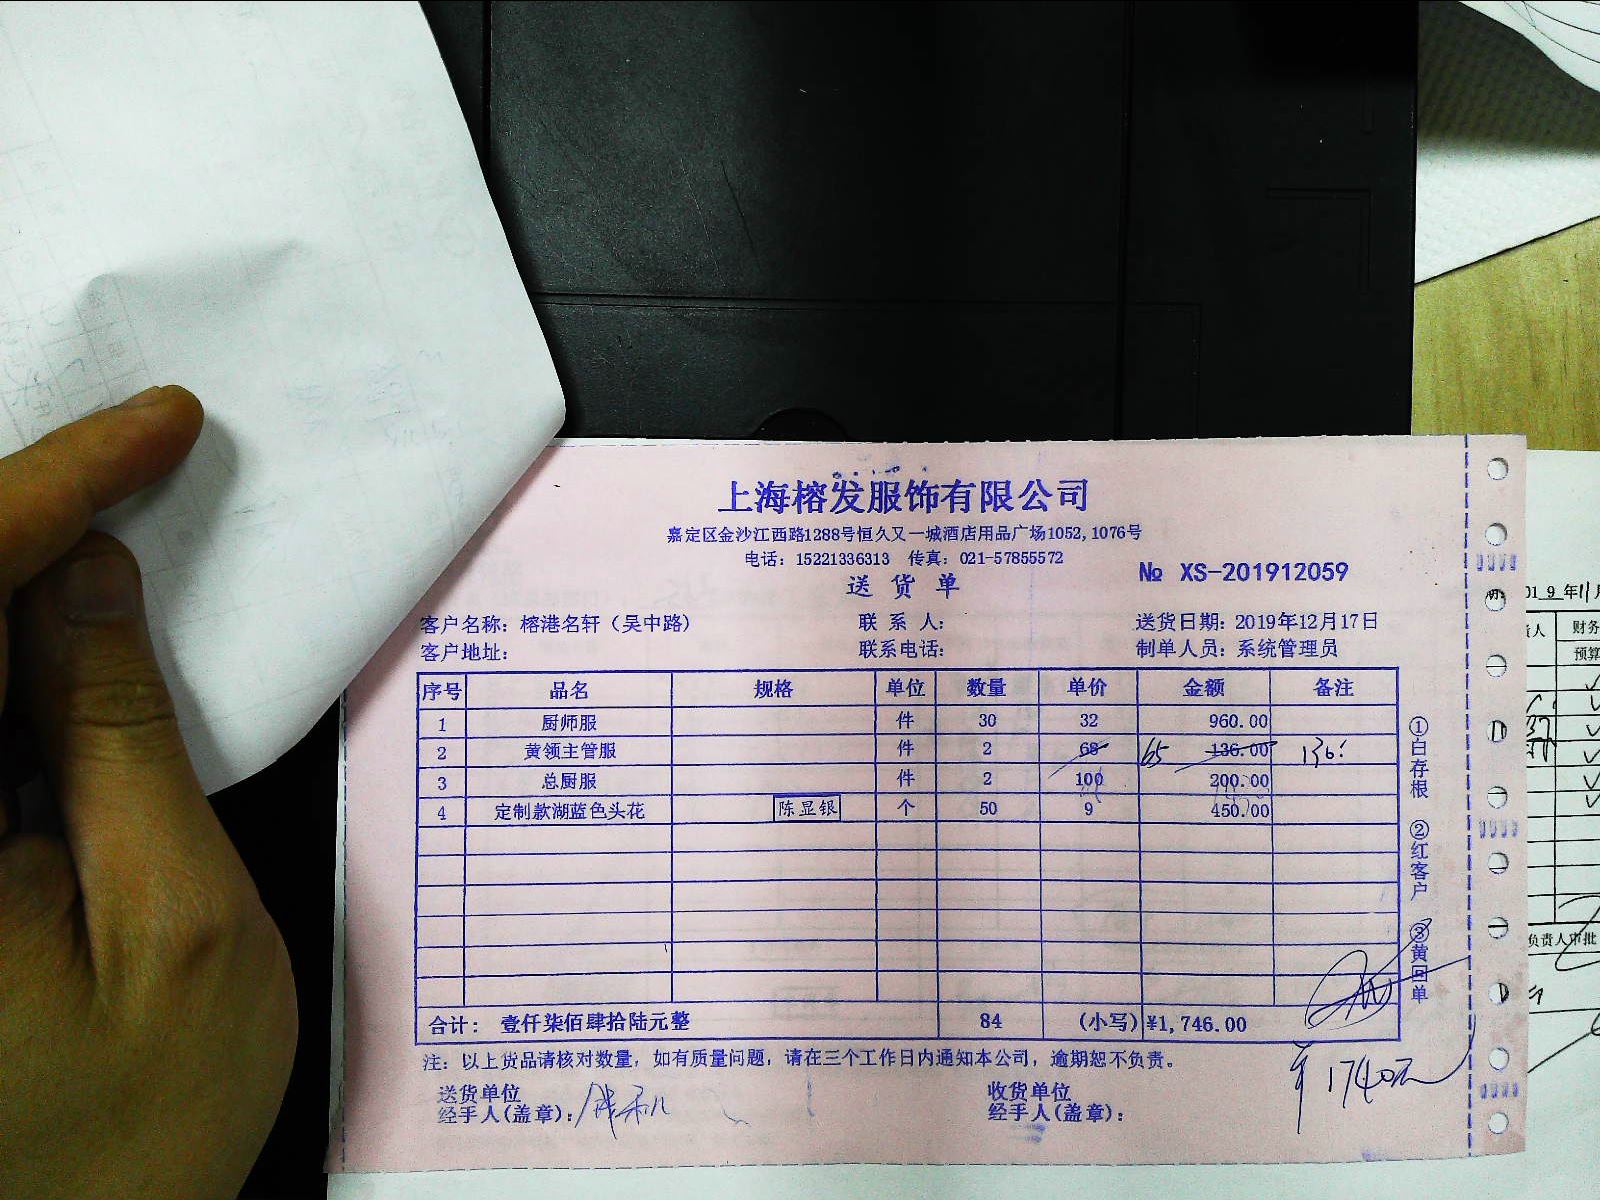 上海榕发服饰有限公司
嘉定区金沙江西路1288号恒久又一城酒店用品广场1052,1076号
电话：15221336313 传真：021-57855572
送货单
№ XS-201912059
客户名称：榕港名轩（吴中路） 联系人： 送货日期：2019年12月17日
客户地址： 联系电话： 制单人员：系统管理员
序号 品名 规格 单位 数量 单价 金额 备注
1 厨师服 件 30 32 960.00
2 黄领主管服 件 2 68 65 136.00 136.
3 总厨服 件 2 100 200.00
4 定制款湖蓝色头花 陈显银 个 50 9 450.00
合计：壹仟柒佰肆拾陆元整 84 (小写) ¥1,746.00
注：以上货品请核对数量，如有质量问题，请在三个工作日内通知本公司，逾期恕不负责。
送货单位 收货单位
经手人(盖章)： 经手人(盖章)：
¥1740元
①白存根 ②红客户 ③黄回单
019年11月
财务
预算
负责人审批